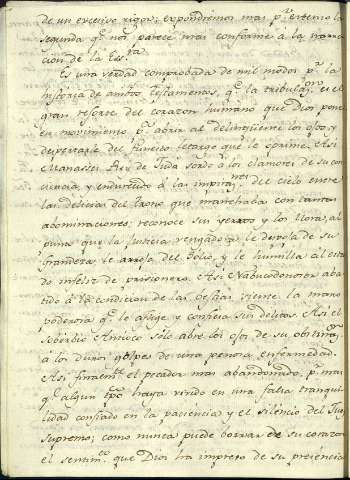 de un excesivo rigor; expondremos mas pr. extenso la
segunda qe. nos parece mas conforme á la narra
cion de la Esra.
Es una verdad comprobada de mil modos pr. la
historia de ambos testamentos, qe. la tribulaon. es el
gran resorte del corazon humano que Dios pone
en movimiento pa. abrir al delinquente los ojos, y
despertarle del funesto letargo que le oprime. Asi
Manasses Rey de Judá sordo à los clamores de su con
ciencia, y endurecido á las inspiranes. del cielo entre
las delicias del trono que manchaba con tantas
abominaciones; reconoce sus yerros y los llora, al
punto que la Justicia vengadora le despoja de su
grandeza, le arroja del Solio, y le humilla al esta
do infeliz de prisionero. Asi Nabucodonosor aba
tido á la condicion de las bestias siente la mano
poderosa qe. le aflige y confiesa sus delitos. Asi el
soberbio Antioco solo abre los ojos de su obstinaon.
á los duros golpes de una penosa enfermedad.
Asi finalmte. el pecador mas abandonado, pr. mas
qe. algun tpo. haya vivido en una falsa tranqui
lidad confiado en la paciencia y el silencio del Juez
supremo; como nunca puede borrar de su corazon
el sentimto. que Dios ha impreso de su presencia